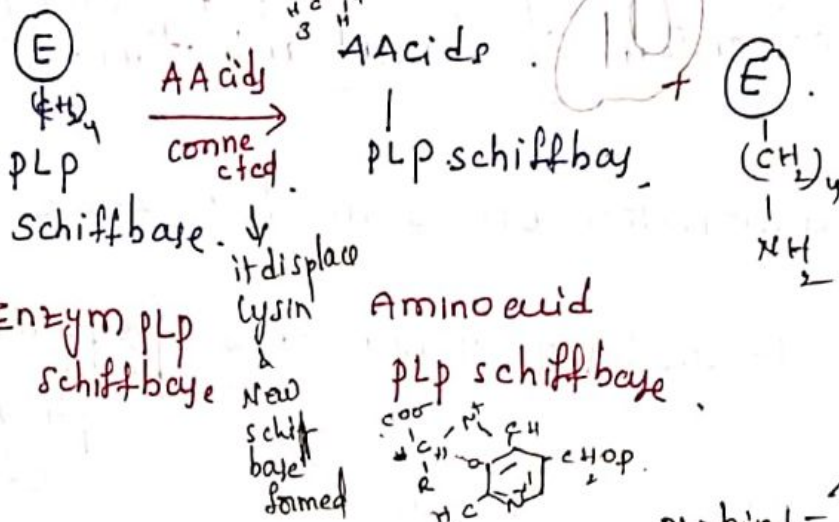 H C H
3
E
(CH2)4
PLP
Schiffbase.
AAcids
conne
cted.
AAcids
PLP schiffbas
+ E
(CH2)4
NH2
it displace
lysin
&
New
schif
base
formed
Enzym PLP
schiffbase
Amino acid
PLP schiffbase.
COO-
H C N+ CH
R O-
CH2OP.
H C N+